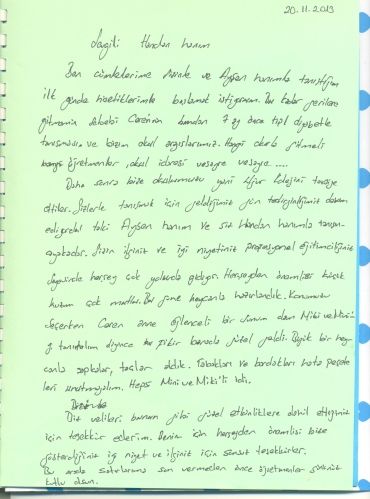 20.11.2013
Sevgili Handan hanım
Ben cümlelerime sizinle ve Ayşen hanımla tanıştığım
ilk günde hissettiklerimle başlamak istiyorum. Bu kadar gerilere
gitmemin sebebi Ceren'in bundan 7 ay önce tip1 diyabetle
tanışması ve bizim okul arayışlarımız. Hangi okul
hangi öğretmenler, okul idaresi vesayre vesayre ....
Daha sonra bize okulumuzu yani tavsiye
ettiler. Sizlerle tanışmak için geldiğimiz gün tedirginliğimiz devam
ediyordu taki Ayşen hanım ve siz Handan hanımla tanışa-
caya kadar. Sizin ilginiz ve iyi niyetiniz profesyonel eğitimciliğiniz
sayesinde herşey çok yolunda gidiyor. Herşeyden önemlisi küçük
kuzum çok mutlu. Bu güne heyecanla hazırlandık. Konumuzu
seçerken Ceren anne eğlenceli bir sunum olsun Miki ve Mini'yi
tanıtalım deyince bu fikir banada güzel geldi. Büyük bir hey-
canla şapkalar, taçlar aldık. Tabakları ve bardakları hata peçete-
leri unutmayalım. Hepsi Mini ve Miki'li idi.
Biz velileri bunun gibi güzel etkinliklere dahil ettiğiniz
için teşekkür ederim. Benim için herşeyden önemlisi bize
gösterdiğiniz iyi niyet ve ilginiz için sonsuz teşekkürler.
Bu arada satırlarıma son vermeden önce öğretmenler gününüz
kutlu olsun.